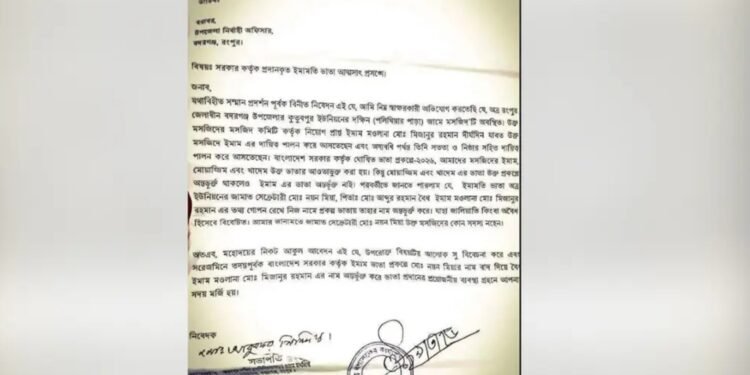 বরাবর,
উপজেলা নির্বাহী অফিসার,
বদরগঞ্জ, রংপুর।
বিষয়ঃ সরকার কর্তৃক প্রদানকৃত ইমামতি ভাতা আত্মসাৎ প্রসঙ্গে।
জনাব,
যথাবিহীত সম্মান প্রদর্শন পূর্বক বিনীত নিবেদন এই যে, আমি নিম্ন স্বাক্ষরকারী অভিযোগ করতেছি যে, অত্র রংপুর
জেলাধীন বদরগঞ্জ উপজেলার কুতুবপুর ইউনিয়নের দক্ষিন (পলিথিয়ার পাড়া) জামে মসজিদ'টি অবস্থিত। উক্ত
মসজিদের মসজিদ কমিটি কর্তৃক নিয়োগ প্রাপ্ত ইমাম মওলানা মোঃ মিজানুর রহমান দীর্ঘদিন যাবত উক্ত
মসজিদে ইমাম এর দায়িত্ব পালন করে আসতেছেন এবং অদ্যবধি পর্যন্ত তিনি সততা ও নিষ্ঠার সহিত দায়িত্ব
পালন করে আসতেছেন। বাংলাদেশ সরকার কর্তৃক ঘোষিত ভাতা প্রকল্পে-২০২৬, আমাদের মসজিদের ইমাম,
মোয়াজ্জিম এবং খাদেম উক্ত ভাতার আওতাভুক্ত করা হয়। কিন্তু মোয়াজ্জিম এবং খাদেম এর ভাতা উক্ত প্রকল্পে
অন্তর্ভূক্ত থাকলেও ইমাম এর ভাতা অন্তর্ভূক্ত নাই। পরবর্তীতে জানতে পারলাম যে, ইমামতি ভাতা অত্র
ইউনিয়নের জামাত সেক্রেটারী মোঃ নয়ন মিয়া, পিতাঃ মোঃ আব্দুর রহমান বৈধ ইমাম মওলানা মোঃ মিজানুর
রহমান এর তথ্য গোপন রেখে নিজ নামে প্রকল্প ভাতায় তাহার নাম অন্তর্ভূক্ত করে। যাহা জালিয়াতি কিংবা অবৈধ
হিসেবে বিবেচিত। আমার জানামতে জামাত সেক্রেটারী মোঃ নয়ন মিয়া উক্ত মসজিদের কোন সদস্য নহেন।
অতএব, মহোদয়ের নিকট আকুল আবেদন এই যে, উপরোক্ত বিষয়টির আলোক সু বিবেচনা করে এবং
সরেজমিনে তদন্তপূর্বক বাংলাদেশ সরকার কর্তৃক ইমাম ভাতা প্রকল্পে মোঃ নয়ন মিয়ার নাম বাদ দিয়ে বৈধ
ইমাম মওলানা মোঃ মিজানুর রহমান এর নাম অন্তর্ভূক্ত করে ভাতা প্রদানের প্রয়োজনীয় ব্যবস্থা গ্রহনে আপনার
সদয় মর্জি হয়।
নিবেদক
সভাপতি